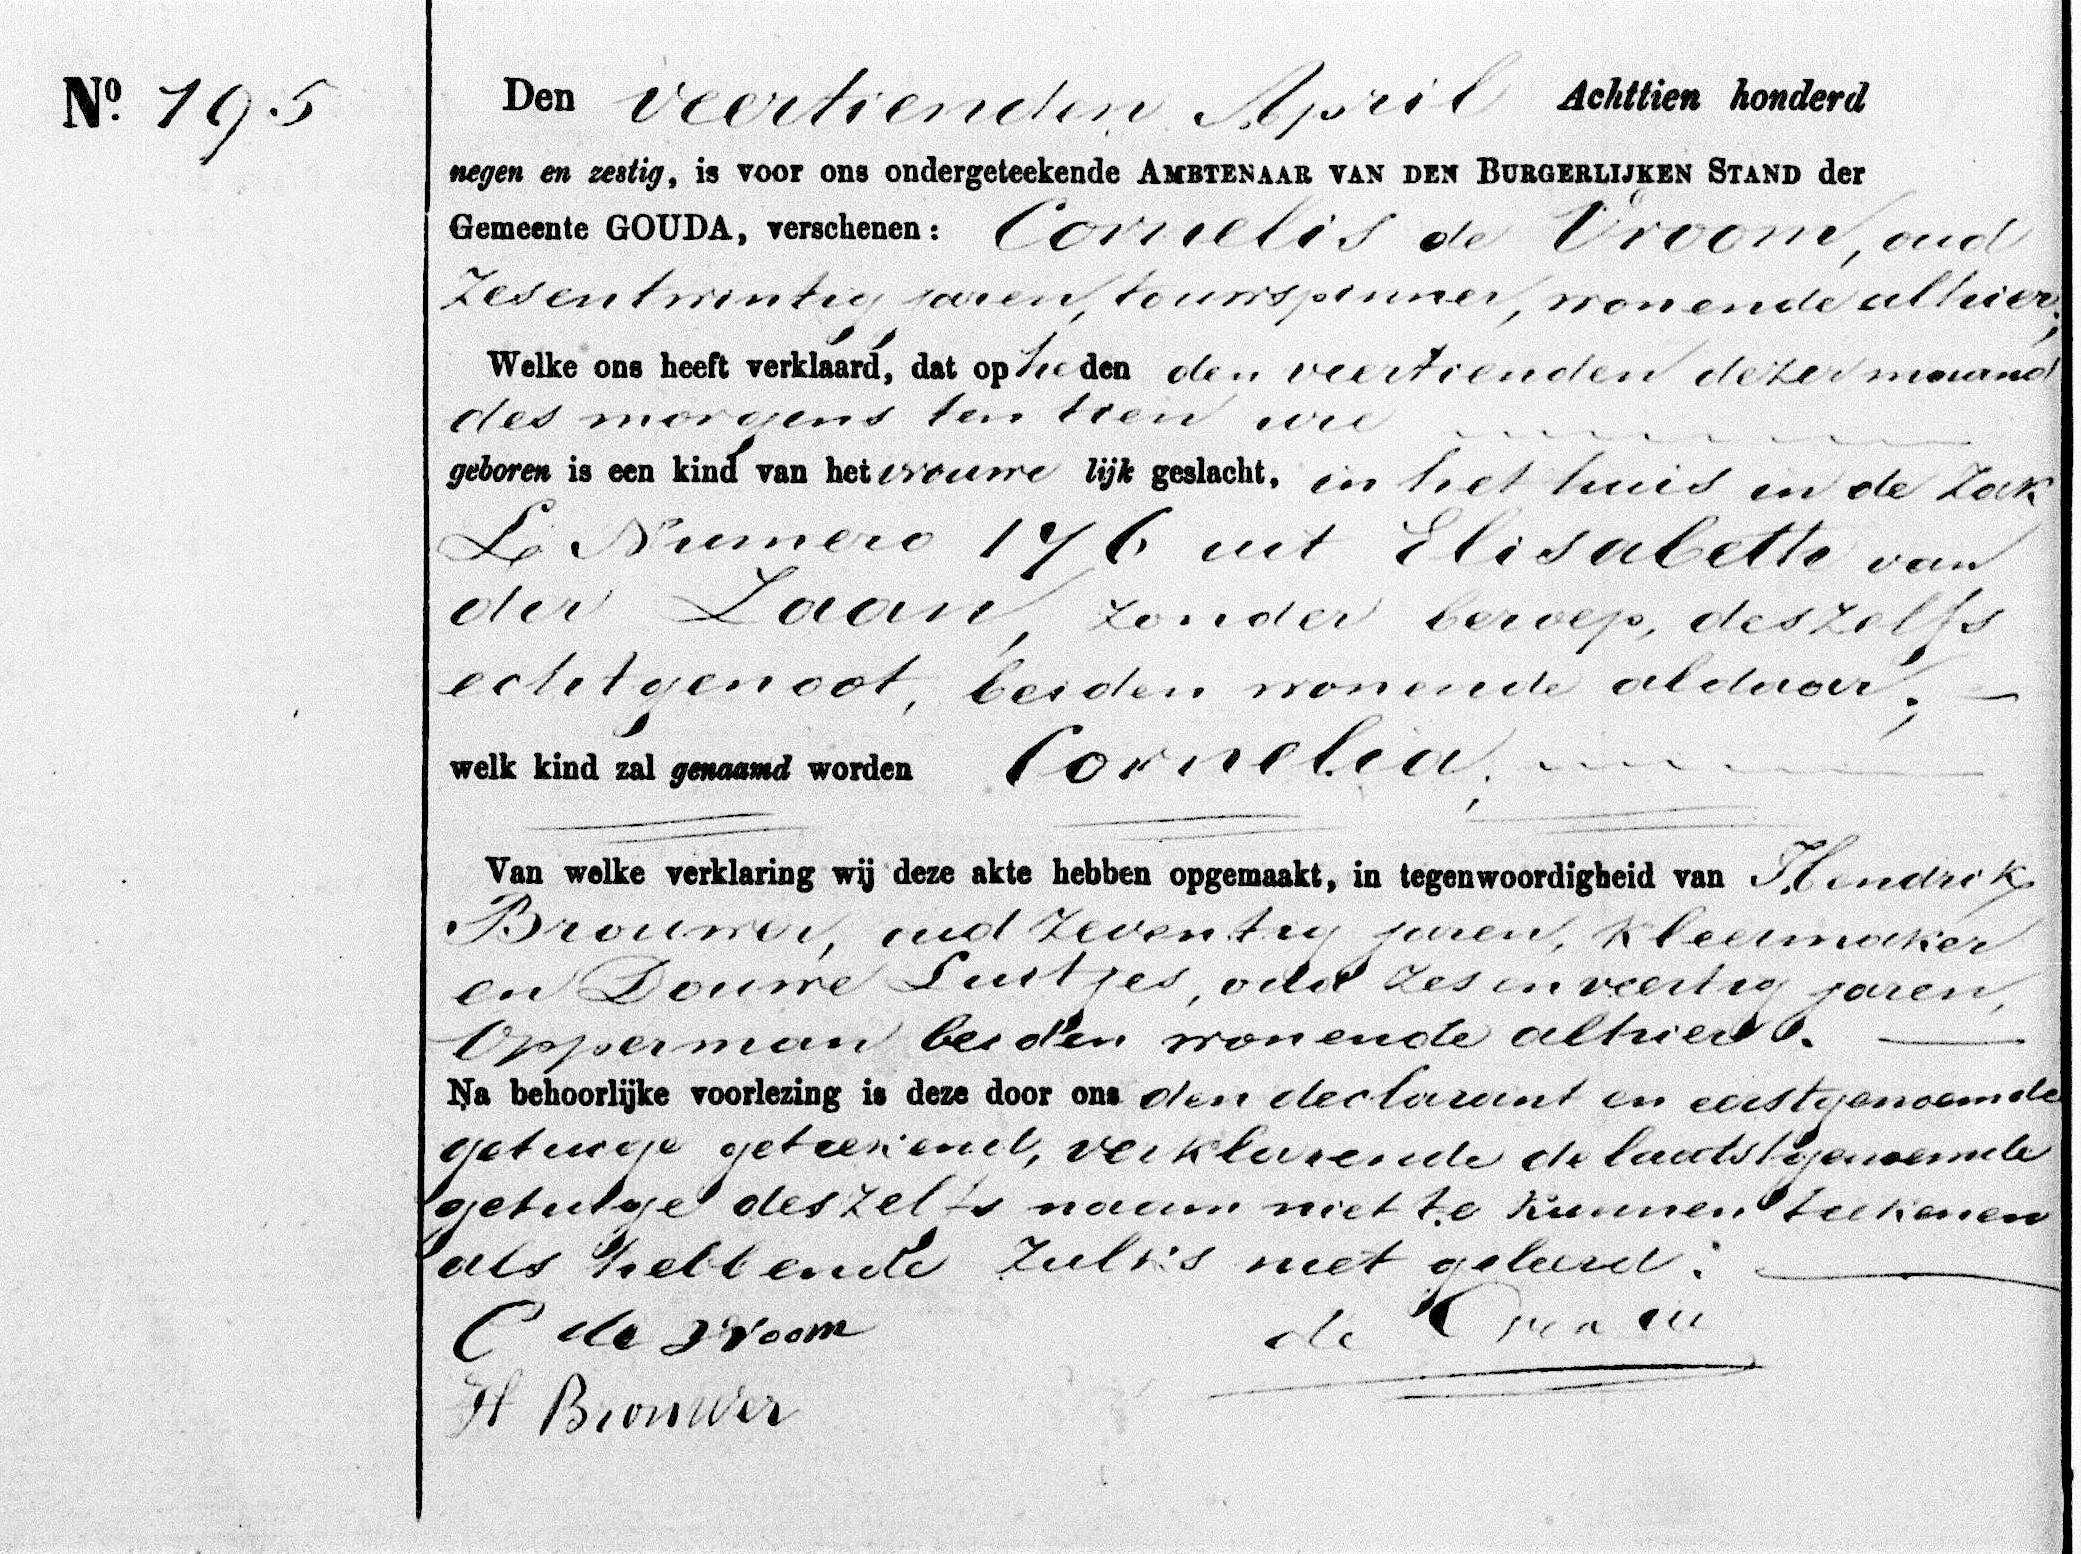 No. 195
Den veertienden April Achttien honderd
negen en zestig, is voor ons ondergeteekende AMBTENAAR VAN DEN BURGERLIJKEN STAND der
Gemeente GOUDA, verschenen: Cornelis de Vroom, oud
zesentwintig jaren, touwspinner, wonende alhier;
Welke ons heeft verklaard, dat op heden den veertienden dezer maand
des morgens ten tien ure
geboren is een kind van het vrouwelijk geslacht, in het huis in de Zak
La Numero 176 uit Elisabeth van
der Laan, zonder beroep, deszelfs
echtgenoot, beiden wonende aldaar;
welk kind zal genaamd worden Cornelia;
Van welke verklaring wij deze akte hebben opgemaakt, in tegenwoordigheid van Hendrik
Brouwer, oud zeventig jaren, kleermaker
en Douwe Luitjes, oud zesenveertig jaren,
Opperman beiden wonende alhier.
Na behoorlijke voorlezing is deze door ons den declarant en eerstgenoemde
getuige geteekend, verklarende de laatstgenoemde
getuige deszelfs naam niet te kunnen teekenen
als hebbende zulks niet geleerd.
C de vroom
H Brouwer